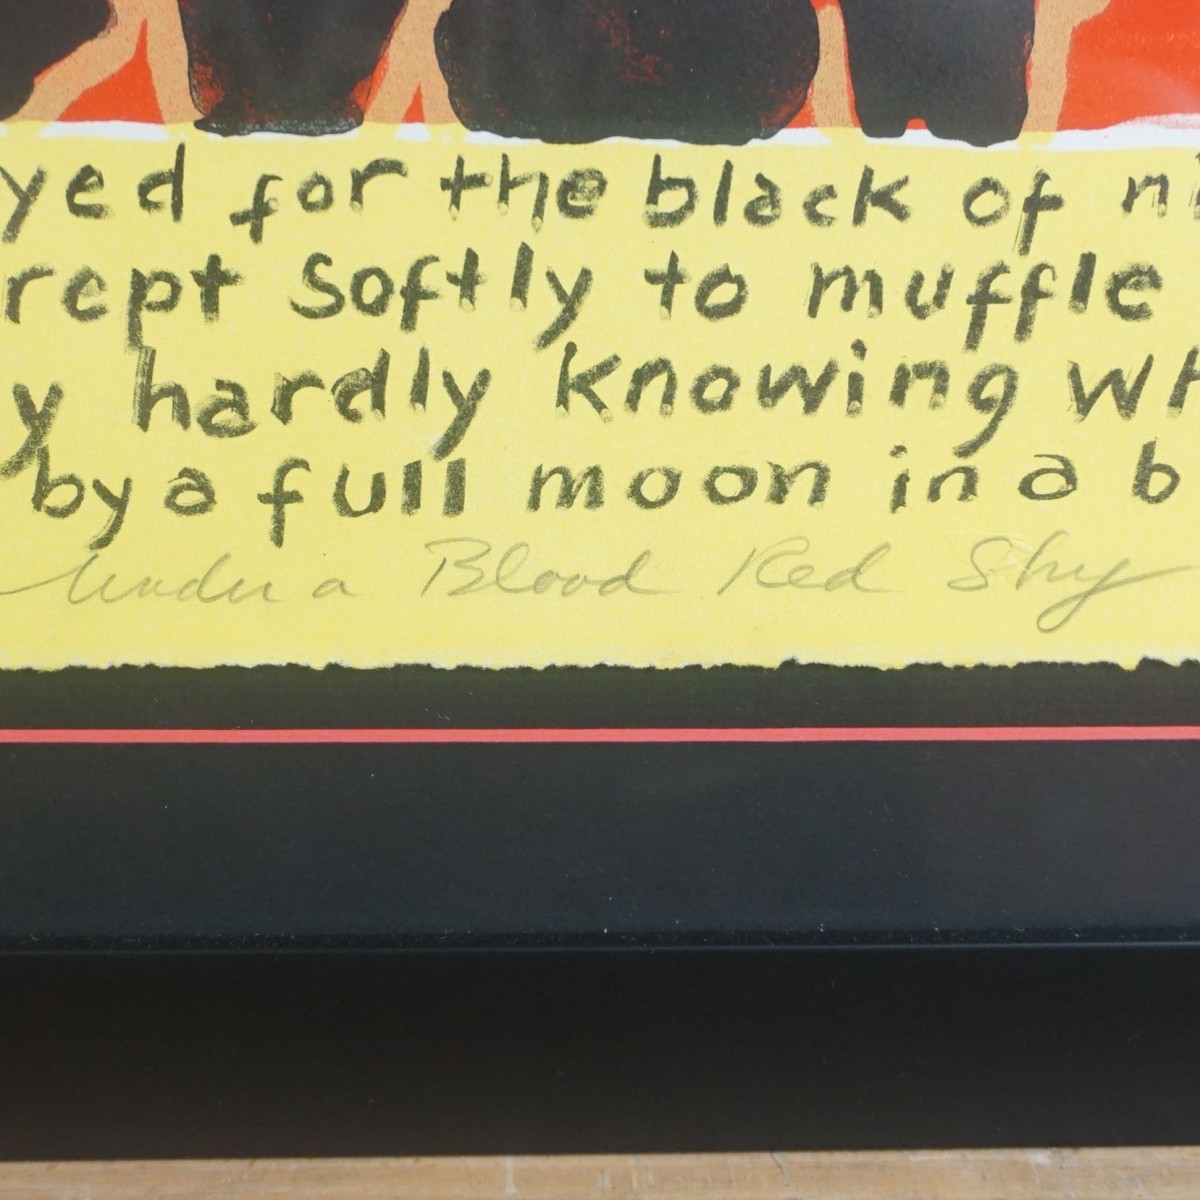 yed for the black of ni
rept softly to muffle
y hardly knowing wh
by a full moon in a b
Under a Blood Red Sky